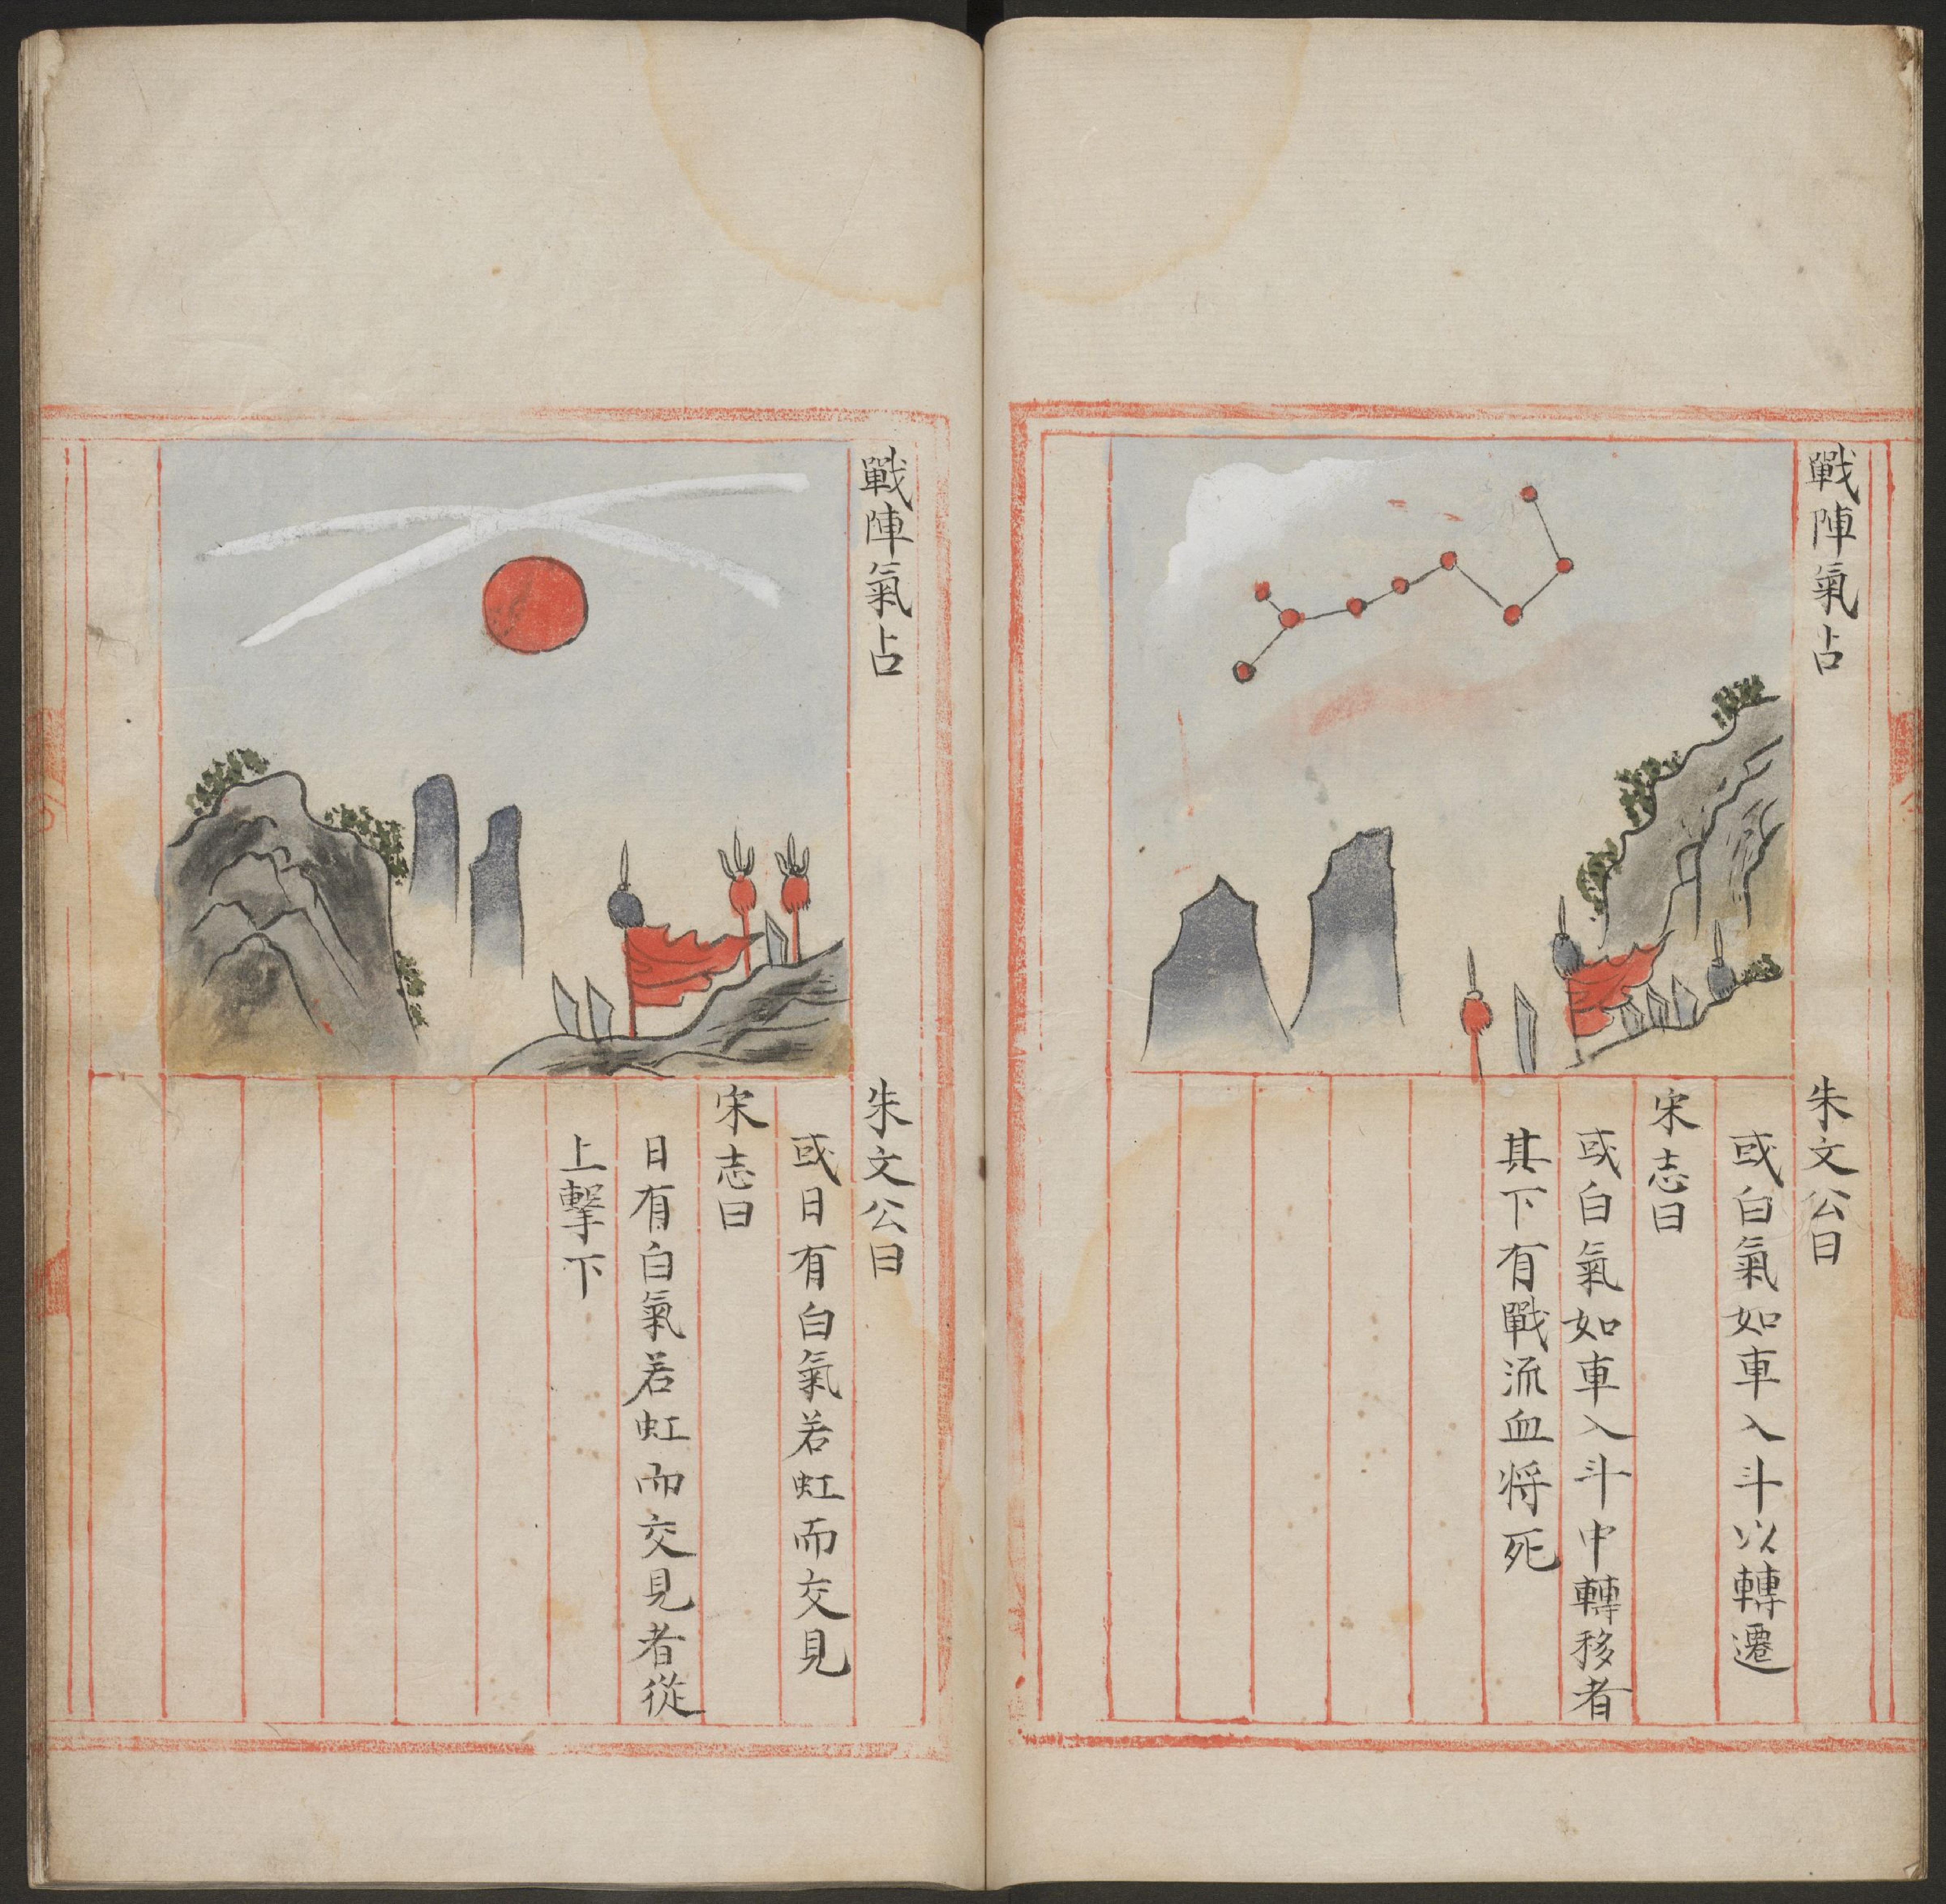 戰陣氣占
朱文公曰
或白氣如車入斗以轉遷
宋志曰
或白氣如車入斗中轉移者
其下有戰流血将死
戰陣氣占
朱文公曰
或日有白氣若虹而交見
宋志曰
日有白氣若虹而交見者從
上擊下